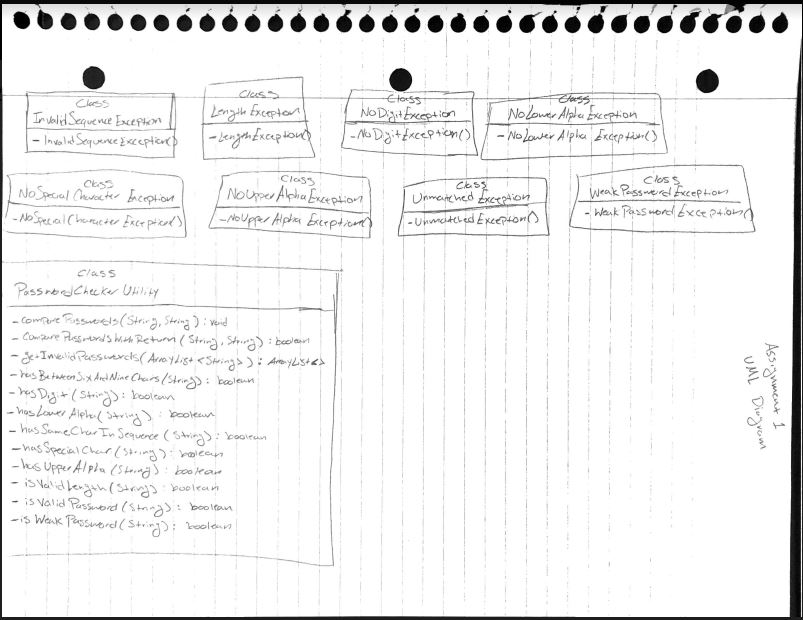 Class
InvalidSequenceException
- InvalidSequenceException()
Class
LengthException
- LengthException()
Class
NoDigitException
- NoDigitException()
Class
NoLowerAlphaException
- NoLowerAlphaException()
Class
NoSpecialCharacter Exception
- NoSpecialCharacter Exception()
Class
NoUpperAlphaException
- NoUpperAlpha Exception()
Class
Unmatched Exception
- Unmatched Exception()
Class
Weak Password Exception
- Weak Password Exception()
Class
PasswordChecker Utility
- comparePasswords (String, String) : void
- Compare Passwords With Return (String, String) : boolean
- getInvalidPasswords (ArrayList <String>) : ArrayList<>
- hasBetweenSixAndNineChars (String) : boolean
- hasDigit (String) : boolean
- hasLowerAlpha (String) : boolean
- hasSameCharInSequence (String) : boolean
- hasSpecialChar (String) : boolean
- hasUpperAlpha (String) : boolean
- isValidLength (String) : boolean
- isValid Password (String) : boolean
- is Weak Password (String) : boolean
Assignment 1
UML Diagram